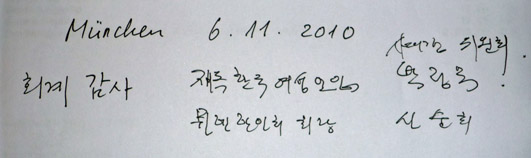 München 6. 11. 2010
회계 감사 재독한국여성모임
뮌헨한인회 회장 신순희